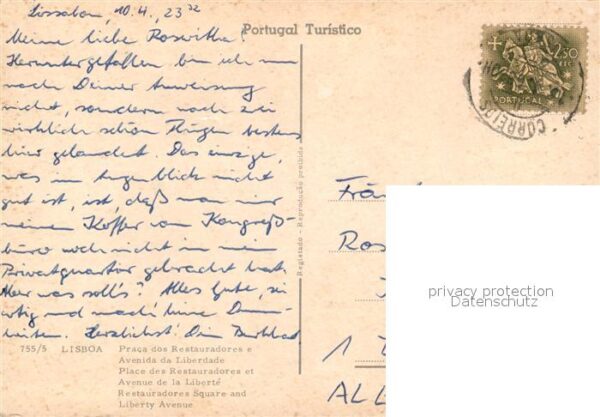 Lissabon, 10.4., 23 22
Meine liebe Roswitha!
Heruntergefallen bin ich nun
nach Deiner Anweisung
nicht, sondern nach zwei
wirklich schön Flügen bestens
hier gelandet. Das einzige,
was im Augenblick nicht
gut ist, ist, daß man mir
meinen Koffer vom Kongreß-
büro noch nicht in mein
Privatquartier gebracht hat.
Aber was soll's? Alles Gute, sei
artig und mach' keine Dumm-
heiten. Herzlichst! Dein
755/5 LISBOA Praça dos Restauradores e
Avenida da Liberdade
Place des Restauradores et
Avenue de la Liberté
Restauradores Square and
Liberty Avenue
Portugal Turístico
Registado - Reprodução proibida
2$50
PORTUGAL
CORREIOS
Frä
Ros
1
ALL
privacy protection
Datenschutz